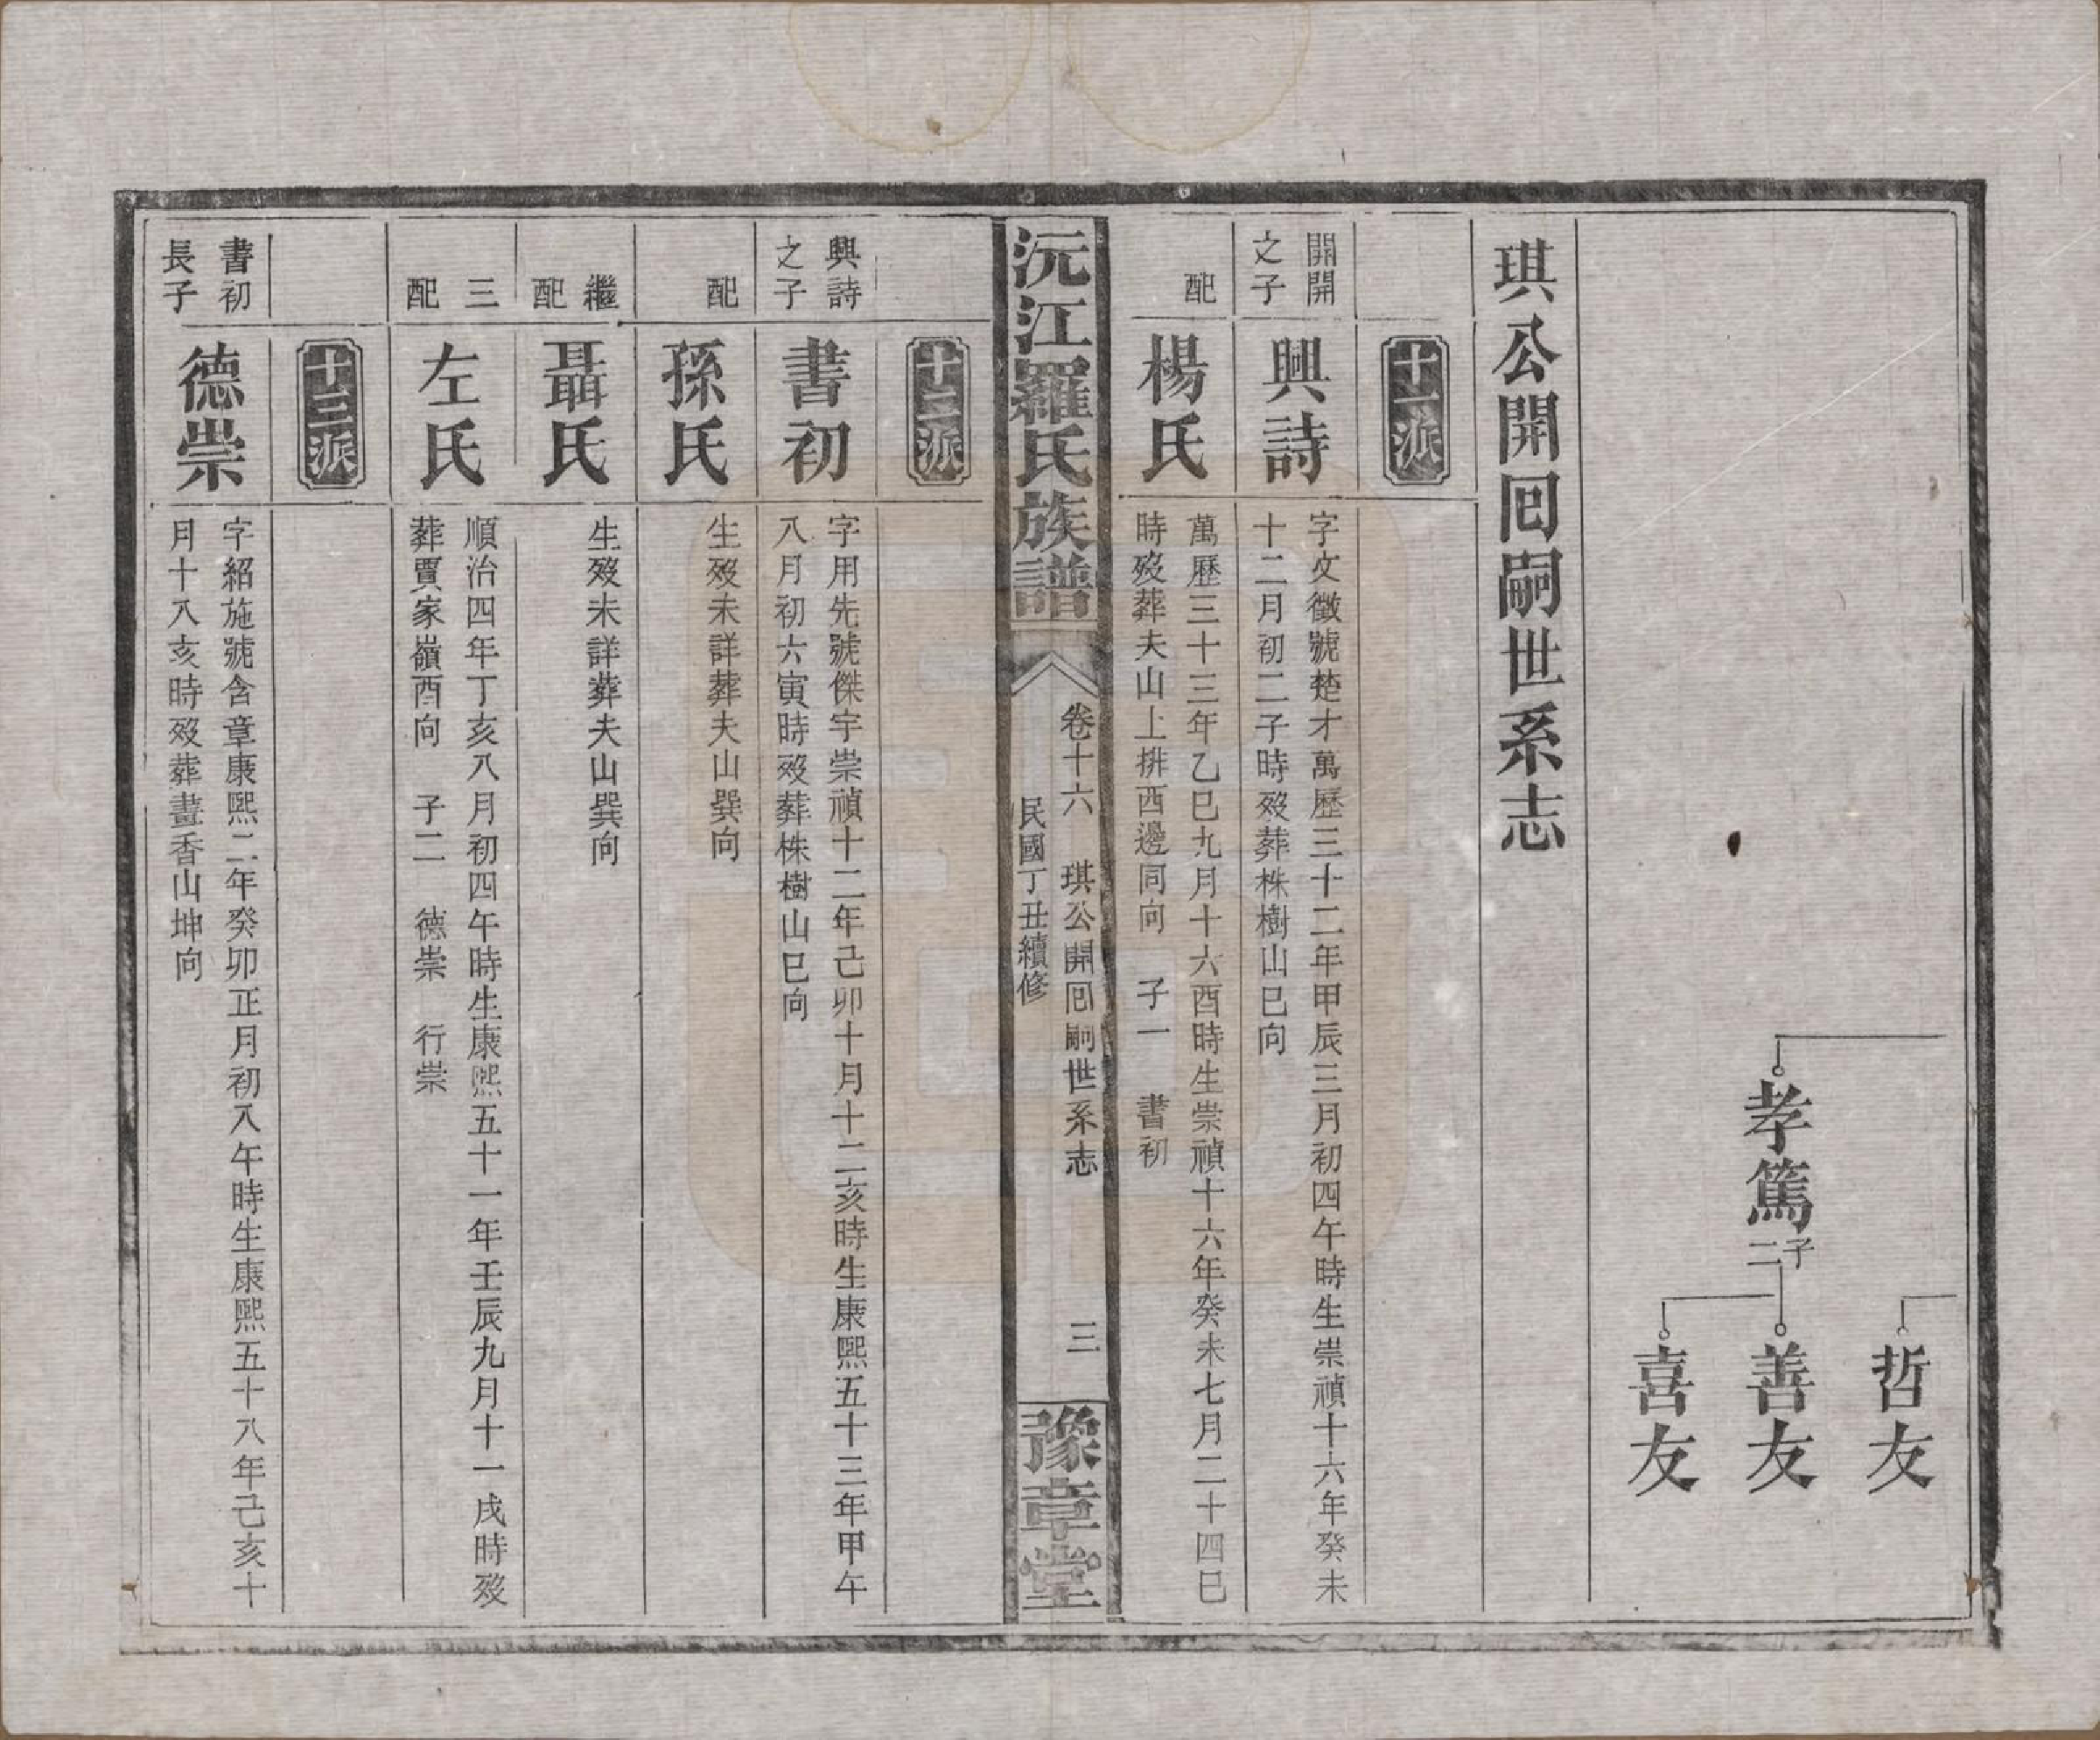 哲友
孝篤
子二
善友
喜友
琪公開囘嗣世系志
十一派
開開之子
興詩
字文徵號楚才萬歷三十二年甲辰三月初四午時生崇禎十六年癸未
十二月初二子時歿葬株樹山巳向
配
楊氏
萬歷三十三年乙巳九月十六酉時生崇禎十六年癸未七月二十四巳
時歿葬夫山上排西邊同向 子一 書初
沅江羅氏族譜
卷十六 琪公開囘嗣世系志 三
民國丁丑續修
豫章堂
十二派
興詩之子
書初
字用先號傑宇崇禎十二年己卯十月十二亥時生康熙五十三年甲午
八月初六寅時歿葬株樹山巳向
配
孫氏
生歿未詳葬夫山巽向
繼配
聶氏
生歿未詳葬夫山巽向
三配
左氏
順治四年丁亥八月初四午時生康熙五十一年壬辰九月十一戌時歿
葬賈家嶺酉向 子二 德崇 行崇
十三派
書初長子
德崇
字紹施號含章康熙二年癸卯正月初八午時生康熙五十八年己亥十
月十八亥時歿葬畫香山坤向